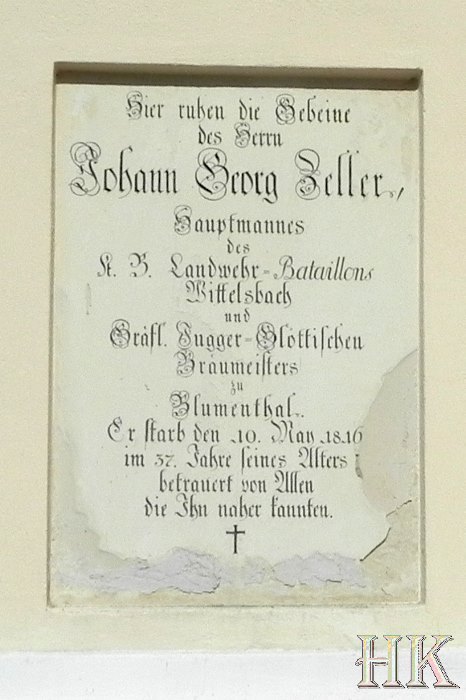 Hier ruhen die Gebeine
des Herrn
Johann Georg Zeller.,
Hauptmannes
des
K. B. Landwehr=Bataillons
Wittelsbach
und
Gräfl. Fugger=Glöttischen
Bräumeisters
zu
Blumenthal.
Er starb den 10. May 1816
im 37. Jahre seines Alters
betrauert von Allen
die Ihn naher kannten.
HK